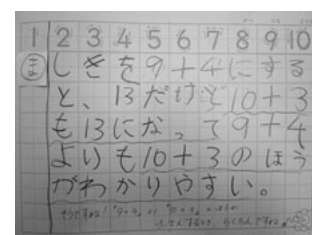 1 2 3 4 5 6 7 8 9 10
しきを9+4にする
と、13だけど10+3
も13になって9+4
よりも10+3のほう
がわかりやすい。